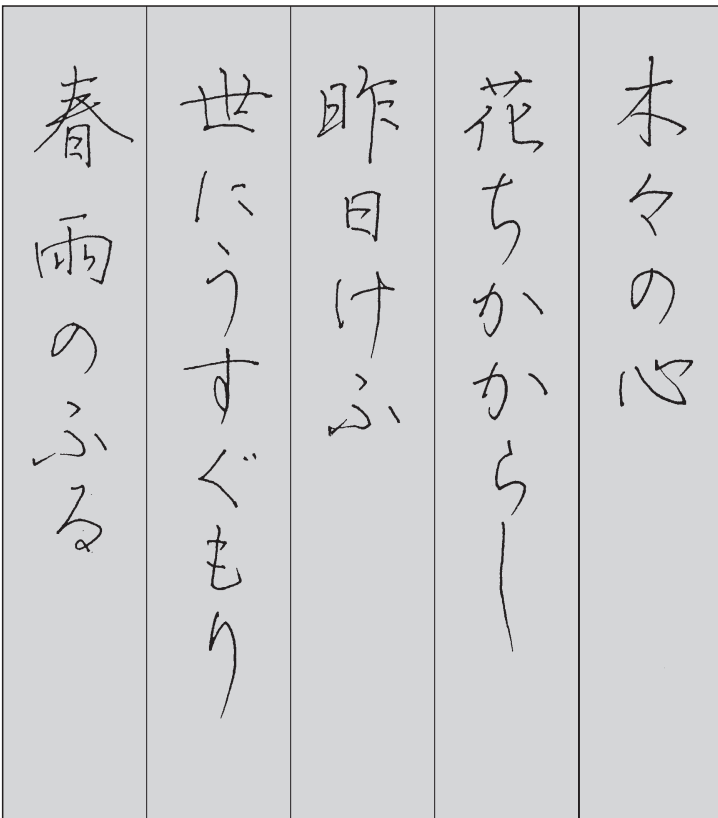 木々の心
花ちかからし
昨日けふ
世にうすぐもり
春雨のふる